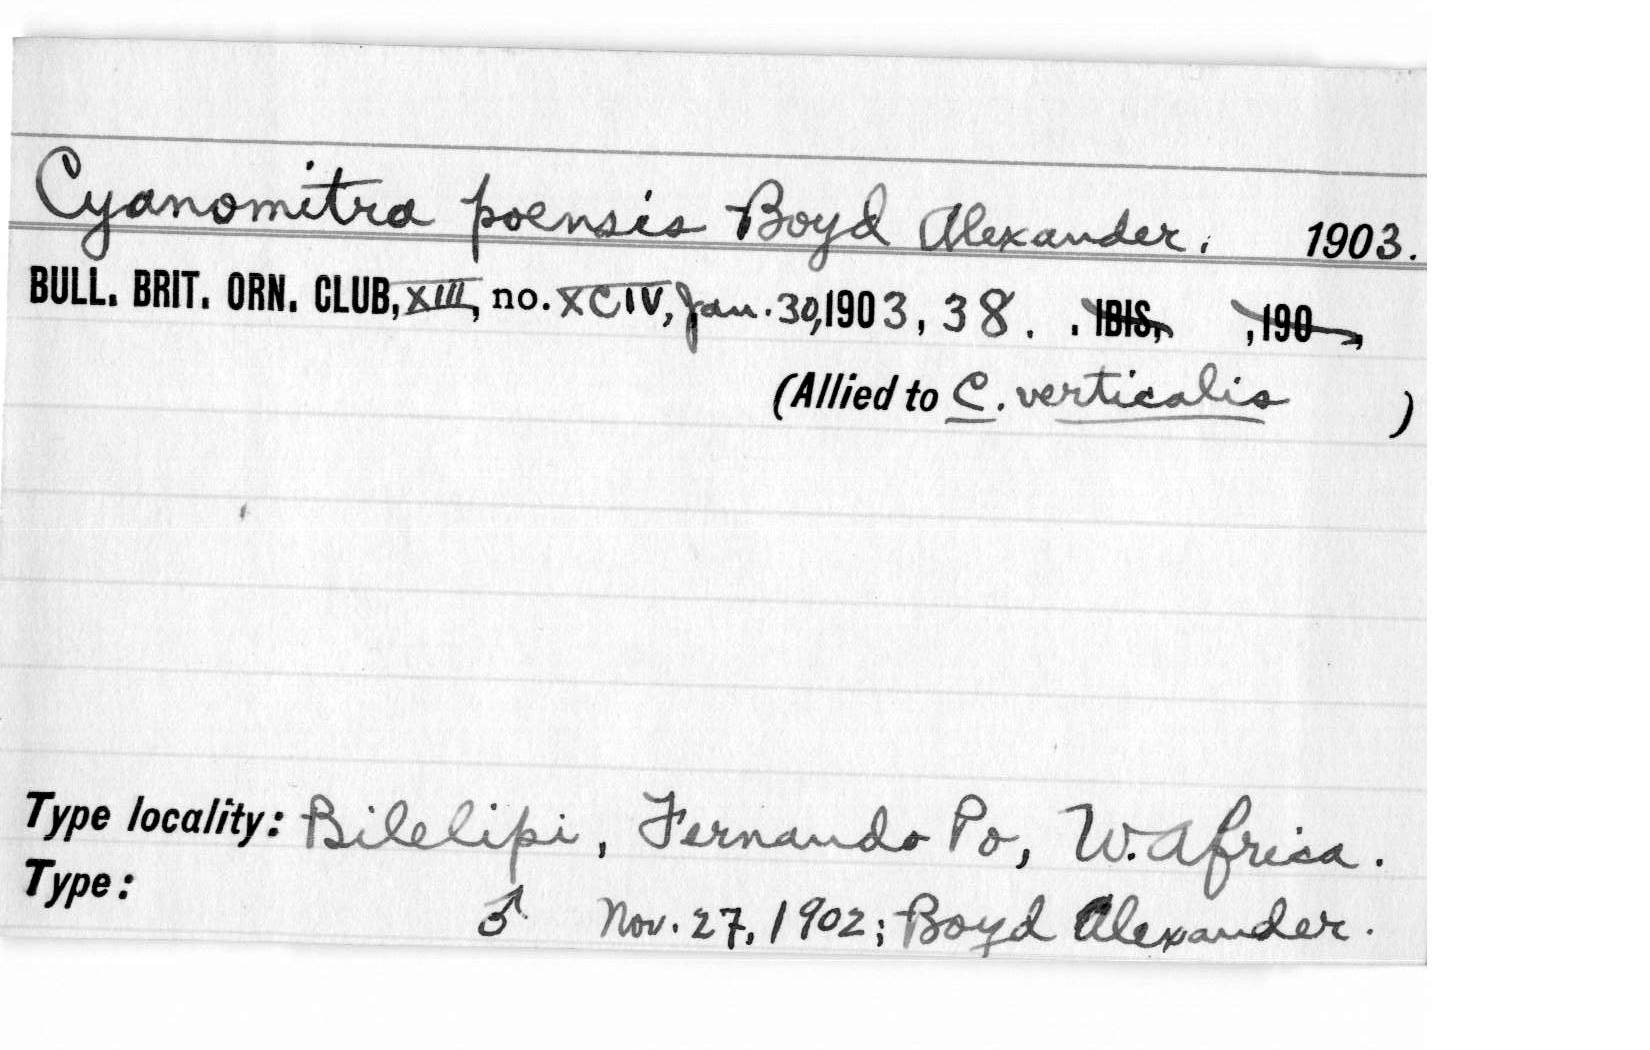 Cyanomitra poensis Boyd Alexander. 1903.
BULL. BRIT. ORN. CLUB, XIII, no. XCIV, Jan. 30, 1903, 38. . IBIS, , 190 ,
(Allied to C. verticalis )
Type locality: Bilelipi, Fernando Po, W. Africa.
Type: ♂ Nov. 27, 1902; Boyd Alexander.